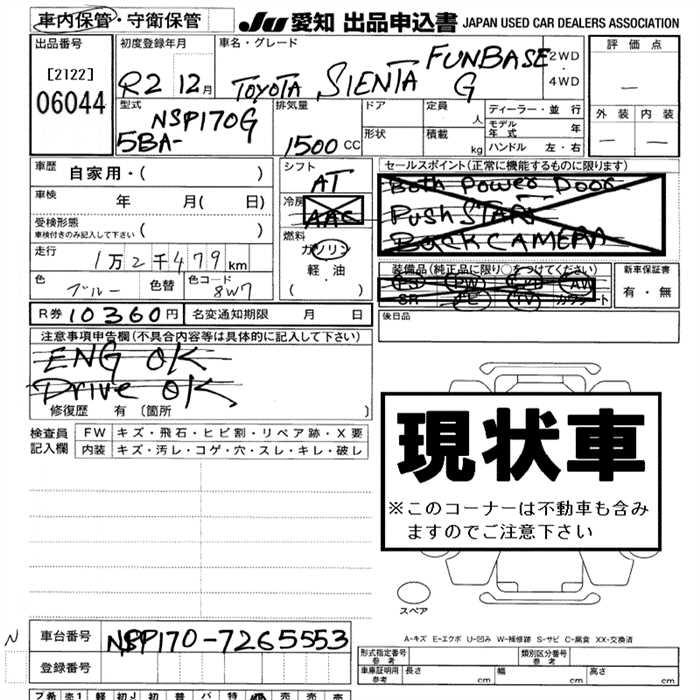 車内保管・守衛保管 JU 愛知 出品申込書 JAPAN USED CAR DEALERS ASSOCIATION
出品番号 初度登録年月 車名・グレード 評価点
[2122] R2 12月 TOYOTA SIENTA FUNBASE G 2WD・4WD —
06044 型式 排気量 ドア 定員 人 ディーラー・並行 外装 内装
NSP170G モデル年式 年 — —
5BA- 1500CC 形状 積載 kg ハンドル 左・右
車歴 自家用・( ) シフト AT セールスポイント(正常に機能するものに限ります)
車検 年 月( 日) 冷房 AAC Both Power Door
受検形態 ( ) PUSH START
車検付きのみ記入して下さい 燃料 BACK CAMERA
走行 1万2千479km ガソリン 装備品(純正品に限り○をつけてください) 新車保証書
色 ブルー 色替 色コード 8W7 軽・油 PS PW AW 有・無
( ・ ) SR TV カワシート
R券 10360円 名変通知期限 月 日 後日品
注意事項申告欄(不具合内容等は具体的に記入して下さい)
ENG OK
Drive OK
修復歴 有 〔箇所 〕
検査員記入欄 FW キズ・飛石・ヒビ割・リペア跡・X要
内装 キズ・汚レ・コゲ・穴・スレ・キレ・破レ
現状車
※このコーナーは不動車も含み
ますのでご注意下さい
スペア
A-キズ E-エクボ U-凹み W-補修跡 S-サビ C-腐食 XX-交換済
N 車台番号 NSP170-7265553
登録番号
形式指定番号 参考 類別区分番号 参考
車庫証明用 参考 長さ cm 幅 cm 高さ cm